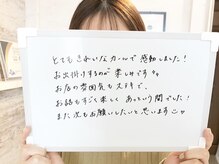 とてもきれいなカールで感動しました!
お出掛けするのが楽しみです♪
お店の雰囲気もステキで、
お話もすごく楽しくあっという間でした!
また次もお願いしたいと思います